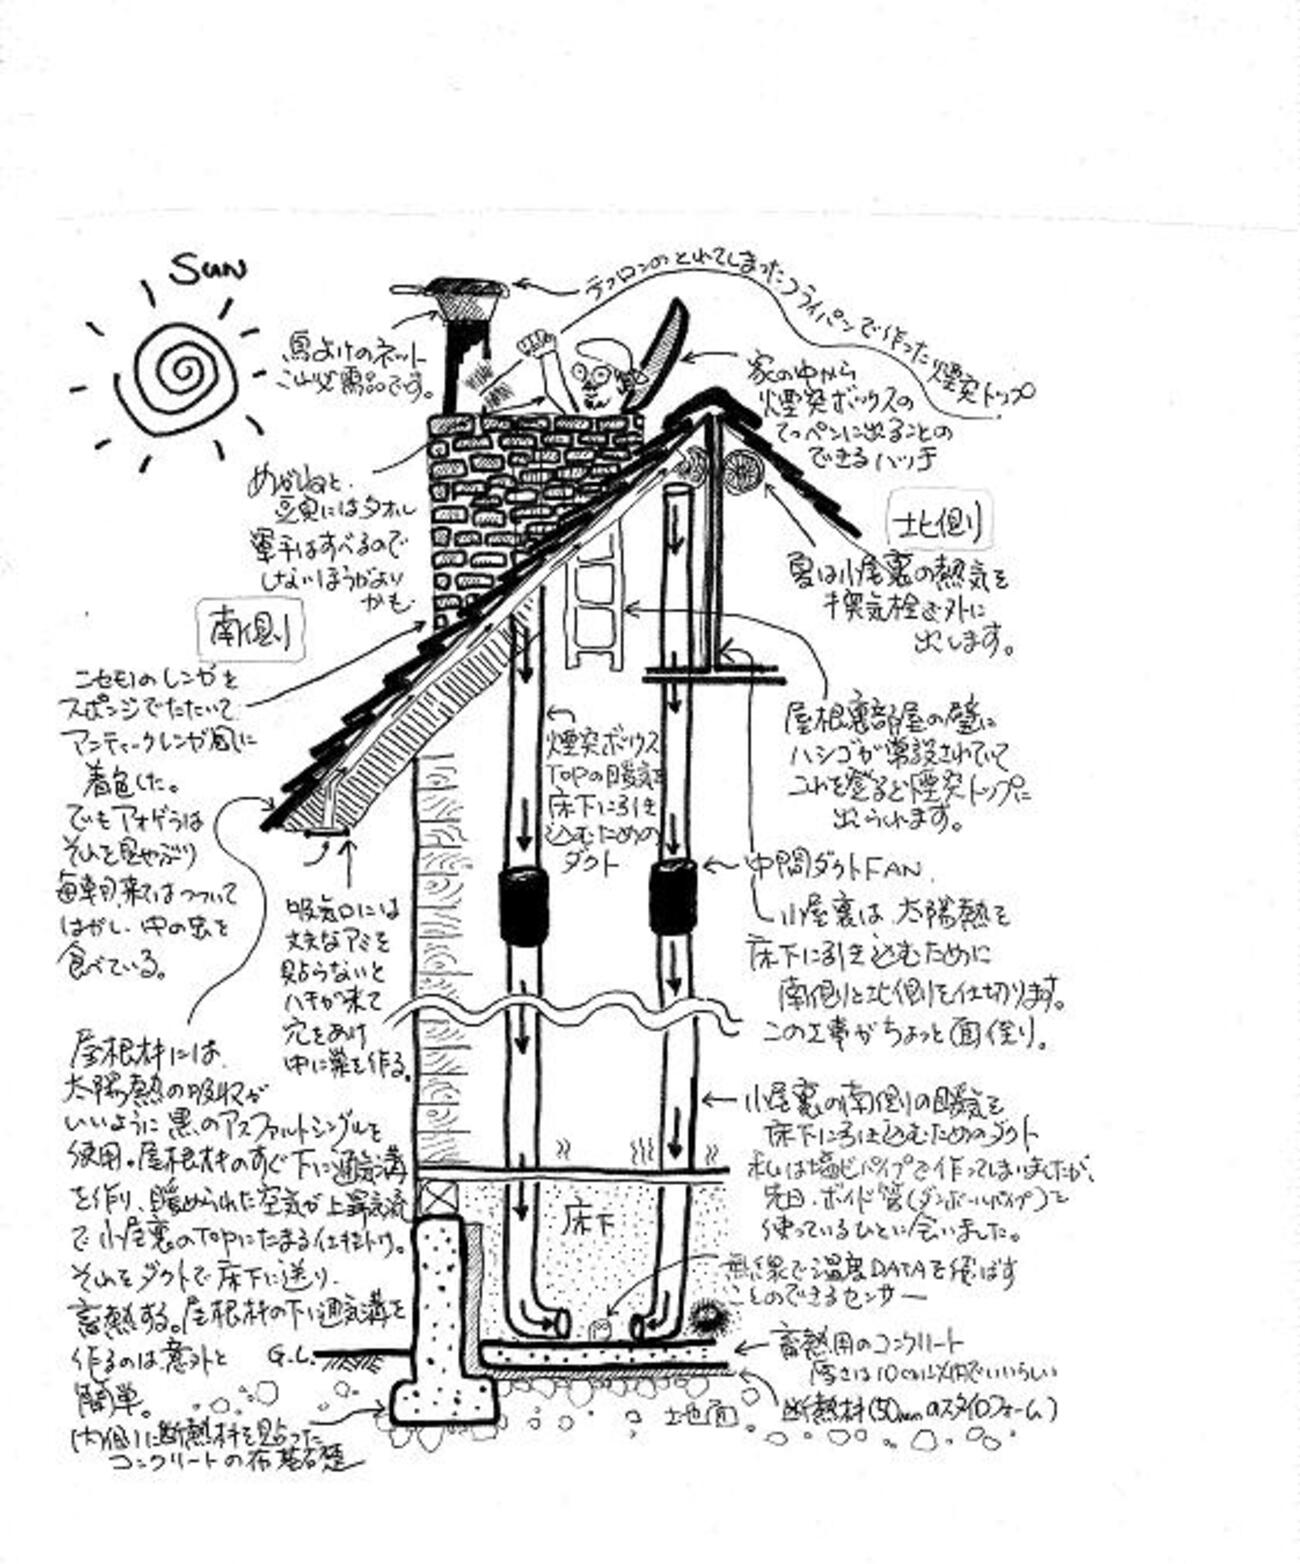 Sun
テフロンのとれてしまったフライパンで作った煙突トップ
鳥よけのネット
これ必需品です。
家の中から
煙突ボックスの
てっペンに出ることの
できるハッチ
めがねと、
豆絞にはタオル
軍手はすべるので
しないほうがよい
かも
北側
夏は小屋裏の熱気を
換気栓で外に
出します。
南側
ニセモノのレンガを
スポンジでたたいて
アンティークレンガ風に
着色した。
でもアオゲラは
それを見やぶり
毎朝来てはつついて
はがし、中の虫を
食べている。
煙突ボックス
TOPの暖気を
床下に引き
込むための
ダクト
屋根裏部屋の壁に
ハシゴが常設されていて
これを登ると煙突トップに
出られます。
中間ダクトFAN
小屋裏は、太陽熱を
床下に引き込むために
南側と北側を仕切ります。
この工事がちょっと面倒。
吸気口には
丈夫なアミを
貼らないと
ハチが来て
穴をあけ
中に巣を作る。
屋根材には、
太陽熱の吸収が
いいように黒のアスファルトシングルを
使用。屋根材のすぐ下に通気溝
を作り、暖められた空気が上昇気流
で小屋裏のTopにたまる仕組み。
それをダクトで床下に送り、
蓄熱する。屋根材の下に通気溝を
作るのは意外と
簡単。
小屋裏の南側の暖気を
床下に引き込むためのダクト
私は塩ビパイプで作ってしまいましたが、
先日、ボイド管(ダンボールパイプ)を
使っているひとに会いました。
床下
無線で温度DATAを飛ばす
ことのできるセンサー
G.L.
蓄熱用のコンクリート
厚さは10cm以内でいいらしい
断熱材(50mmのスタイロフォーム)
土地面
内側に断熱材を貼った
コンクリートの布基礎